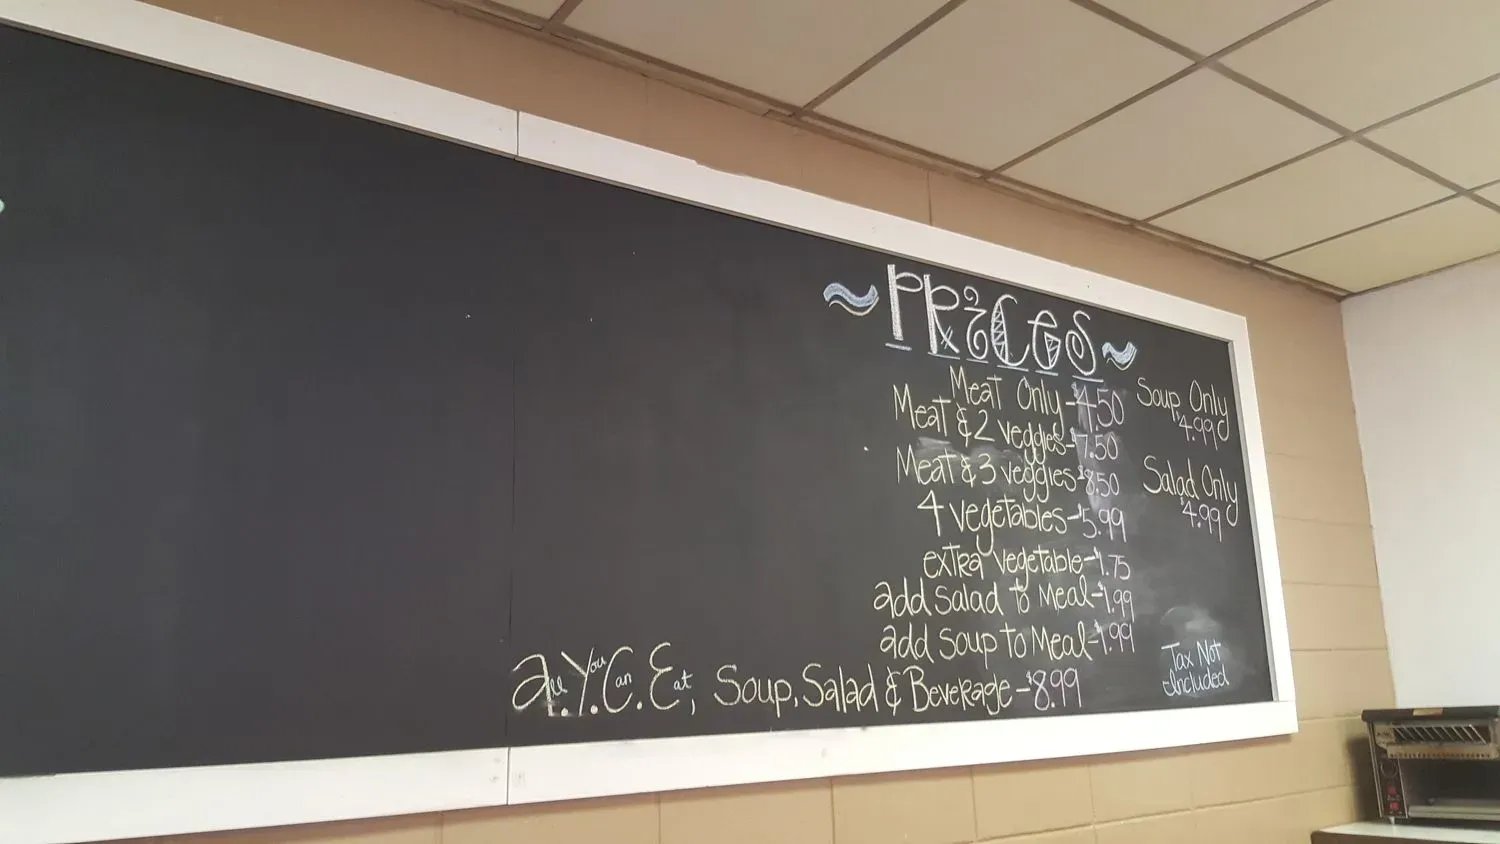 ~PRiCeS~
Meat Only-$4.50
Meat & 2 veggies-$7.50
Meat & 3 veggies $8.50
4 vegetables-$5.99
extra vegetable-$1.75
add Salad to Meal-$1.99
add Soup to Meal-$1.99
All.You.Can.Eat, Soup, Salad & Beverage-$8.99
Soup Only
$4.99
Salad Only
$4.99
Tax Not
Included